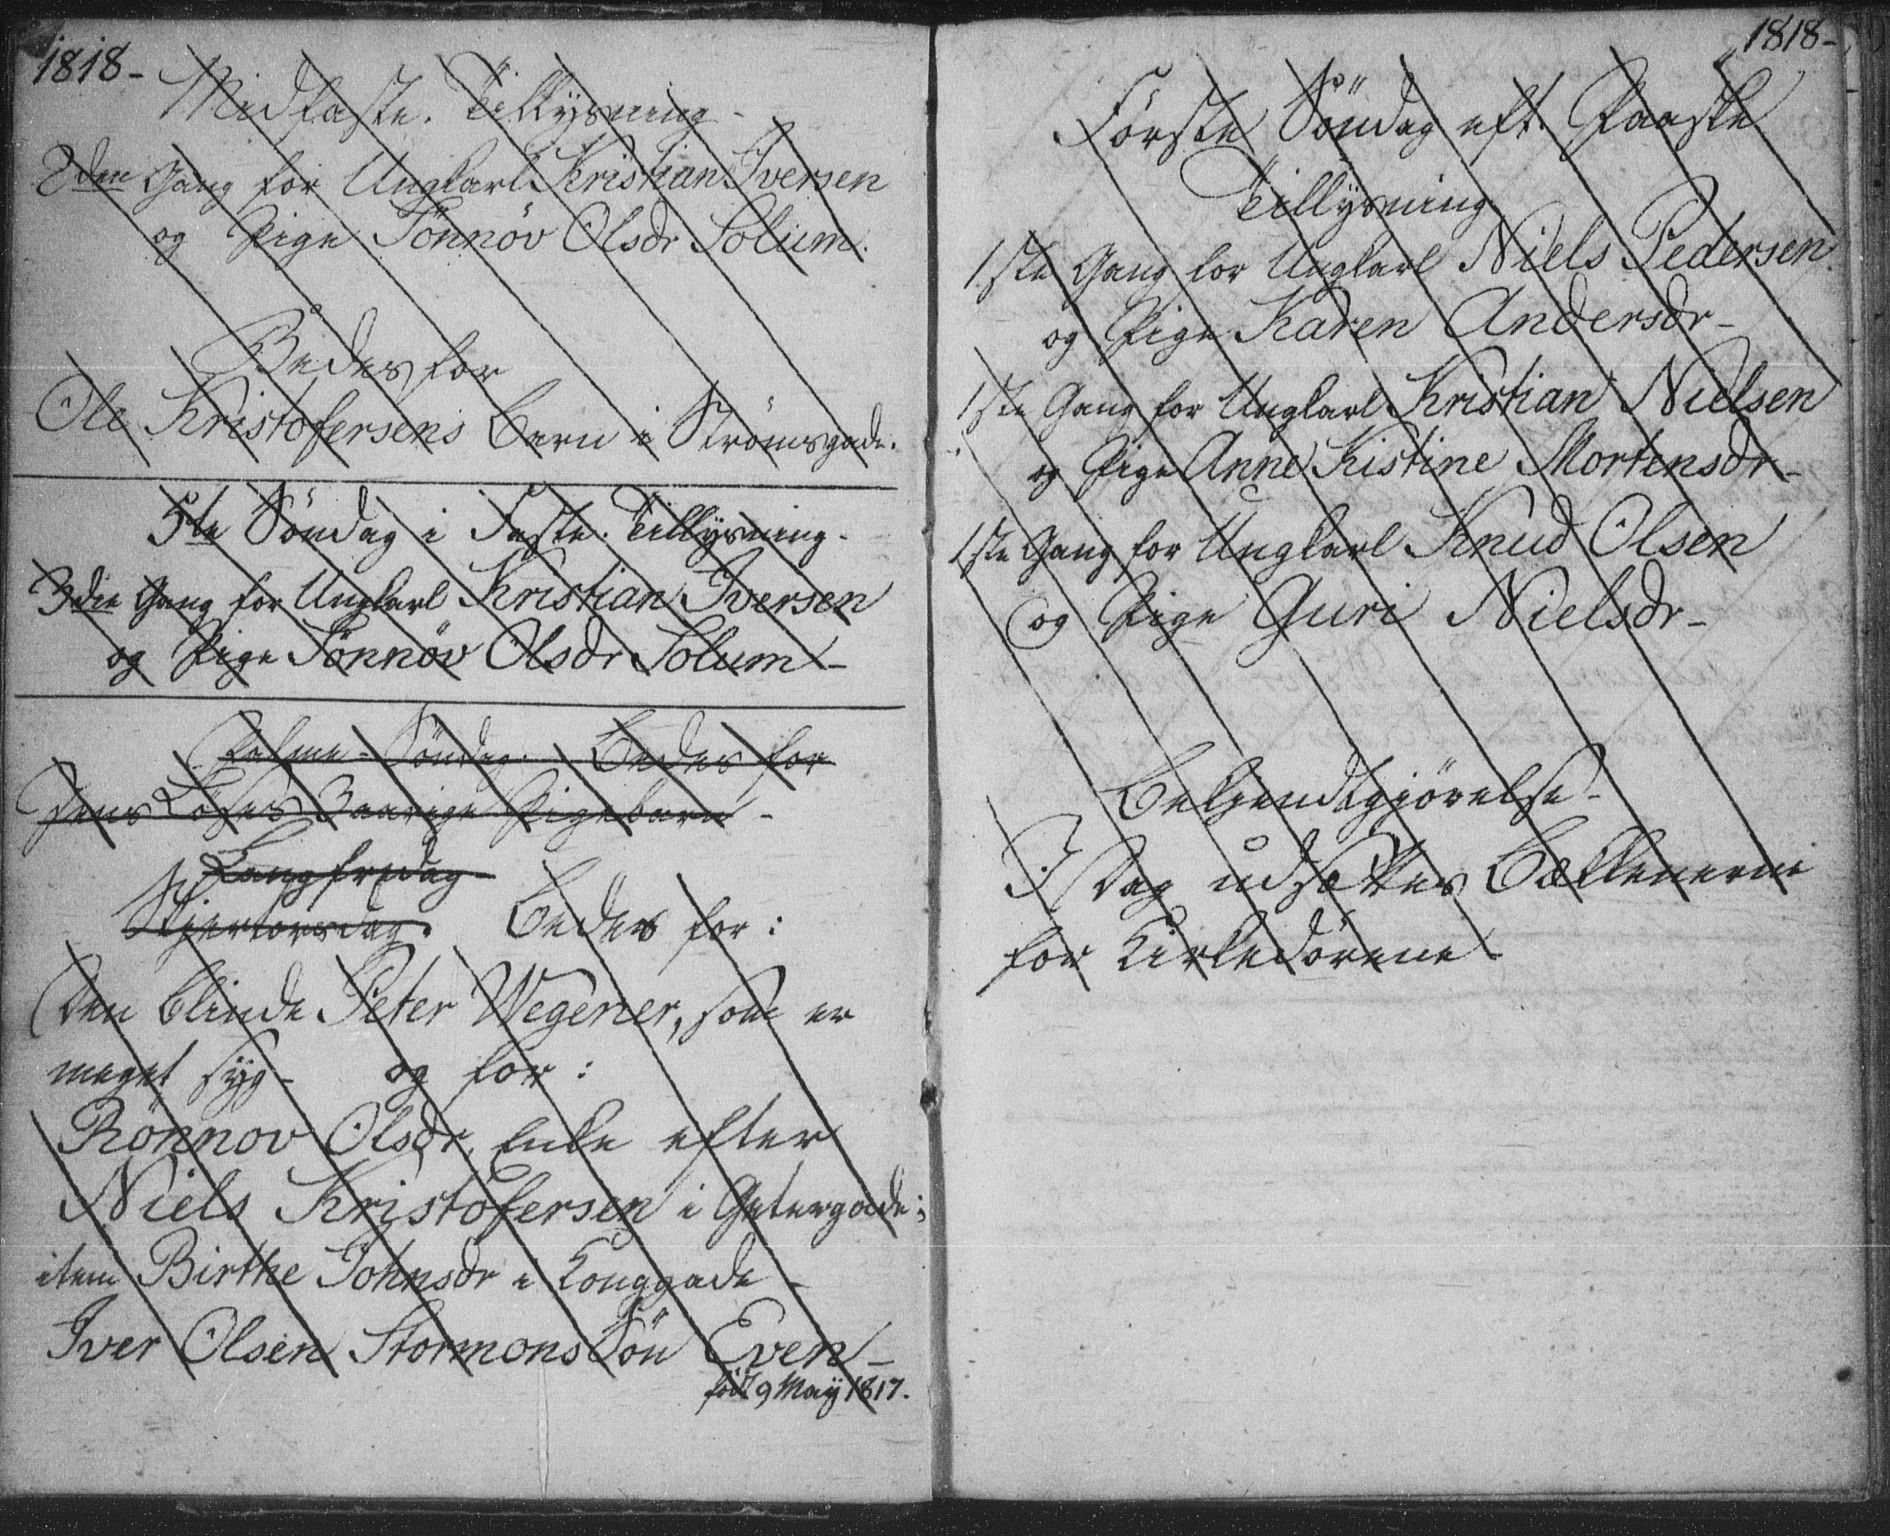 1818-
Midfaste. Tillysning-
2den Gang for Ungkarl Kristian Iversen
og Pige Sönnöv Olsdr Solum.
Bedes for
Ole Kristofersens Barn i Strömsgade.
5te Söndag i Faste. Tillysning-
3die Gang for Ungkarl Kristian Iversen
og Pige Sönnöv Olsdr Solum-
Palme-Söndag. Bedes for
Jens 3aarige Pigebarn-
Langfredag
Skjertorsdag. Bedes for:
Den blinde Peter Wegener, som er
meget syg- og for:
Rönnov Olsdr, Enke efter
Niels Kristofersen i Getergade;
item Birthe Johnsdr i Konggade-
Iver Olsen Stormons Sön Even-
föd 9 May 1817.
1818-
Förste Söndag eft. Paaske
Tillysning
1ste Gang for Ungkarl Niels Pedersen
og Pige Karen Andersdr-
1ste Gang for Ungkarl Kristian Nielsen
og Pige Anne Kistine Mortensdr-
1ste Gang for Ungkarl Knud Olsen
og Pige Guri Nielsdr-
Bekjendtgjörelse-
I Dag udsættes Bækkenerne
for Kirkedörene-